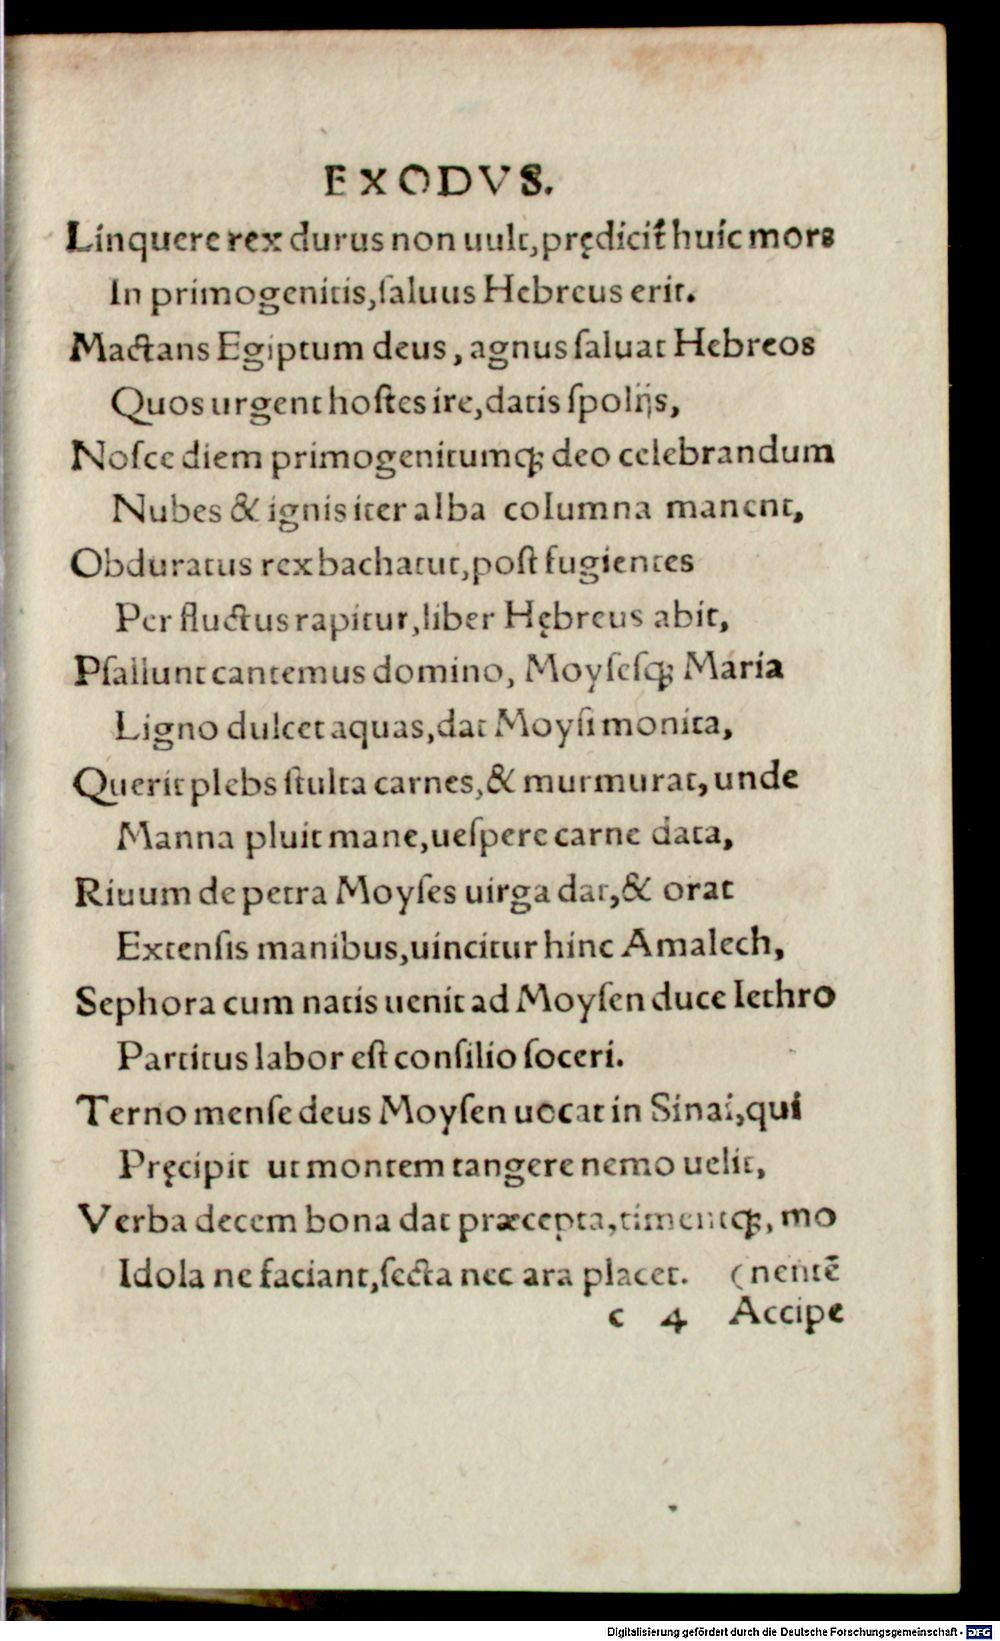 EXODVS.
Linquere rex durus non uult, prędicit̃ huic mors
In primogenitis, ſaluus Hebreus erit.
Mactans Egiptum deus, agnus ſaluat Hebreos
Quos urgent hoſtes ire, datis ſpolijs,
Noſce diem primogenitumq; deo celebrandum
Nubes & ignis iter alba columna manent,
Obduratus rex bachatur, poſt fugientes
Per fluctus rapitur, liber Hębreus abit,
Pſallunt cantemus domino, Moyſeſq; Maria
Ligno dulcet aquas, dat Moyſi monita,
Querit plebs ſtulta carnes, & murmurat, unde
Manna pluit mane, ueſpere carne data,
Riuum de petra Moyſes uirga dat, & orat
Extenſis manibus, uincitur hinc Amalech,
Sephora cum natis uenit ad Moyſen duce Iethro
Partitus labor eſt conſilio ſoceri.
Terno menſe deus Moyſen uocat in Sinai, qui
Pręcipit ut montem tangere nemo uelit,
Verba decem bona dat præcepta, timentq;, mo
Idola ne faciant, ſecta nec ara placet. (nentē
c 4 Accipe
Digitalisierung gefördert durch die Deutsche Forschungsgemeinschaft - DFG